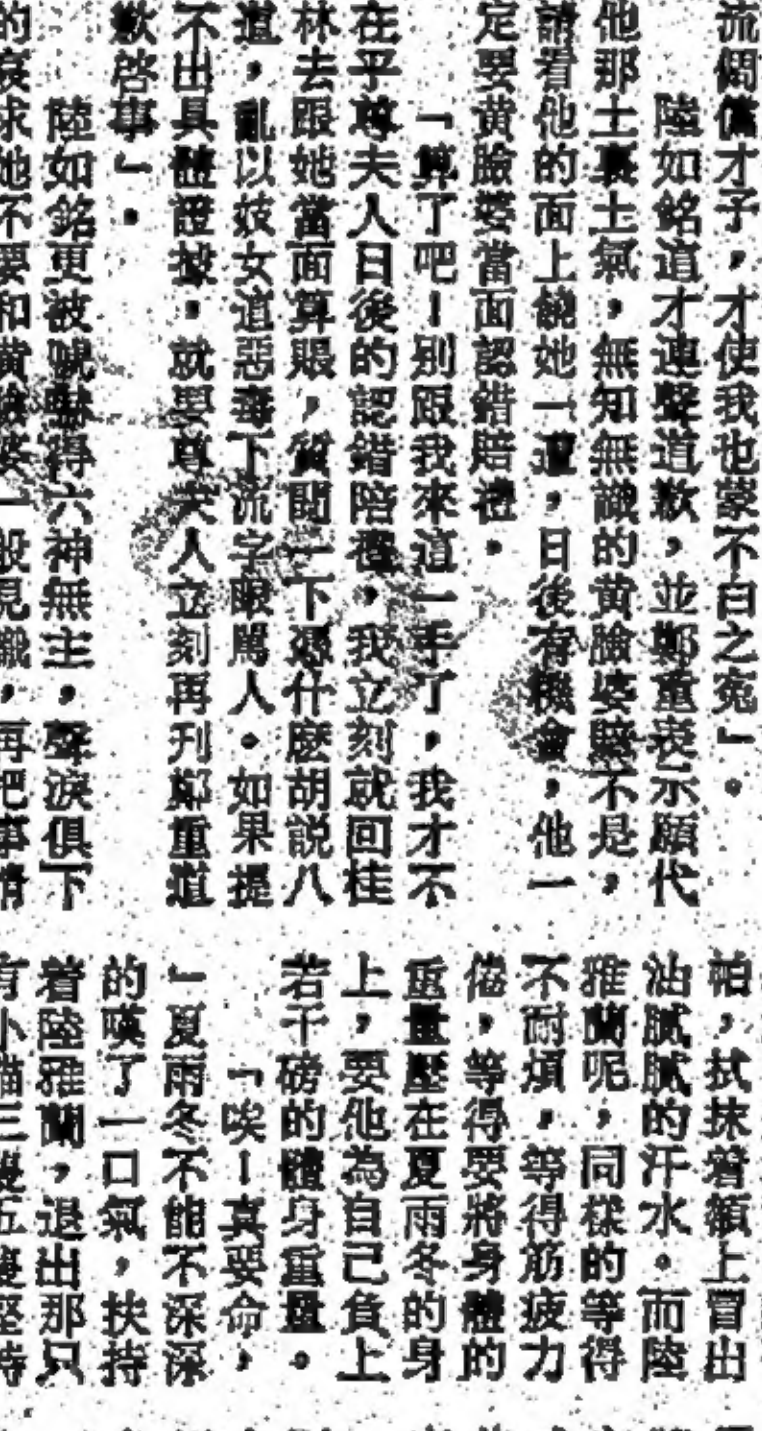 流倜儻才子，才使我也蒙不白之冤」。
陸如銘道才連聲道歉，並鄭重表示願代
他那土裏土氣，無知無識的黃臉婆賠不是，
請看他的面上饒她一遭，日後有機會，他一
定要黃臉婆當面認錯賠禮。
「算了吧！別跟我來這一手了，我才不
在乎尊夫人日後的認錯陪禮，我立刻就回桂
林去跟她當面算賬，質問一下憑什麼胡說八
道，亂以妓女這惡毒下流字眼罵人。如果提
不出具體證據，就要尊夫人立刻再刋鄭重道
歉啓事」。
陸如銘更被唬嚇得六神無主，聲淚俱下
的哀求她不要和黃臉婆一般見識，再把事情
帕，拭抹着額上冒出
油膩膩的汗水。而陸
雅蘭呢，同樣的等得
不耐煩，等得筋疲力
倦，等得要將身體的
重量壓在夏雨冬的身
上，要他為自己負上
若干磅的體身重量。
「唉！真要命，
」夏雨冬不能不深深
的嘆了一口氣，扶持
着陸雅蘭，退出那只
有小貓三隻五隻堅持